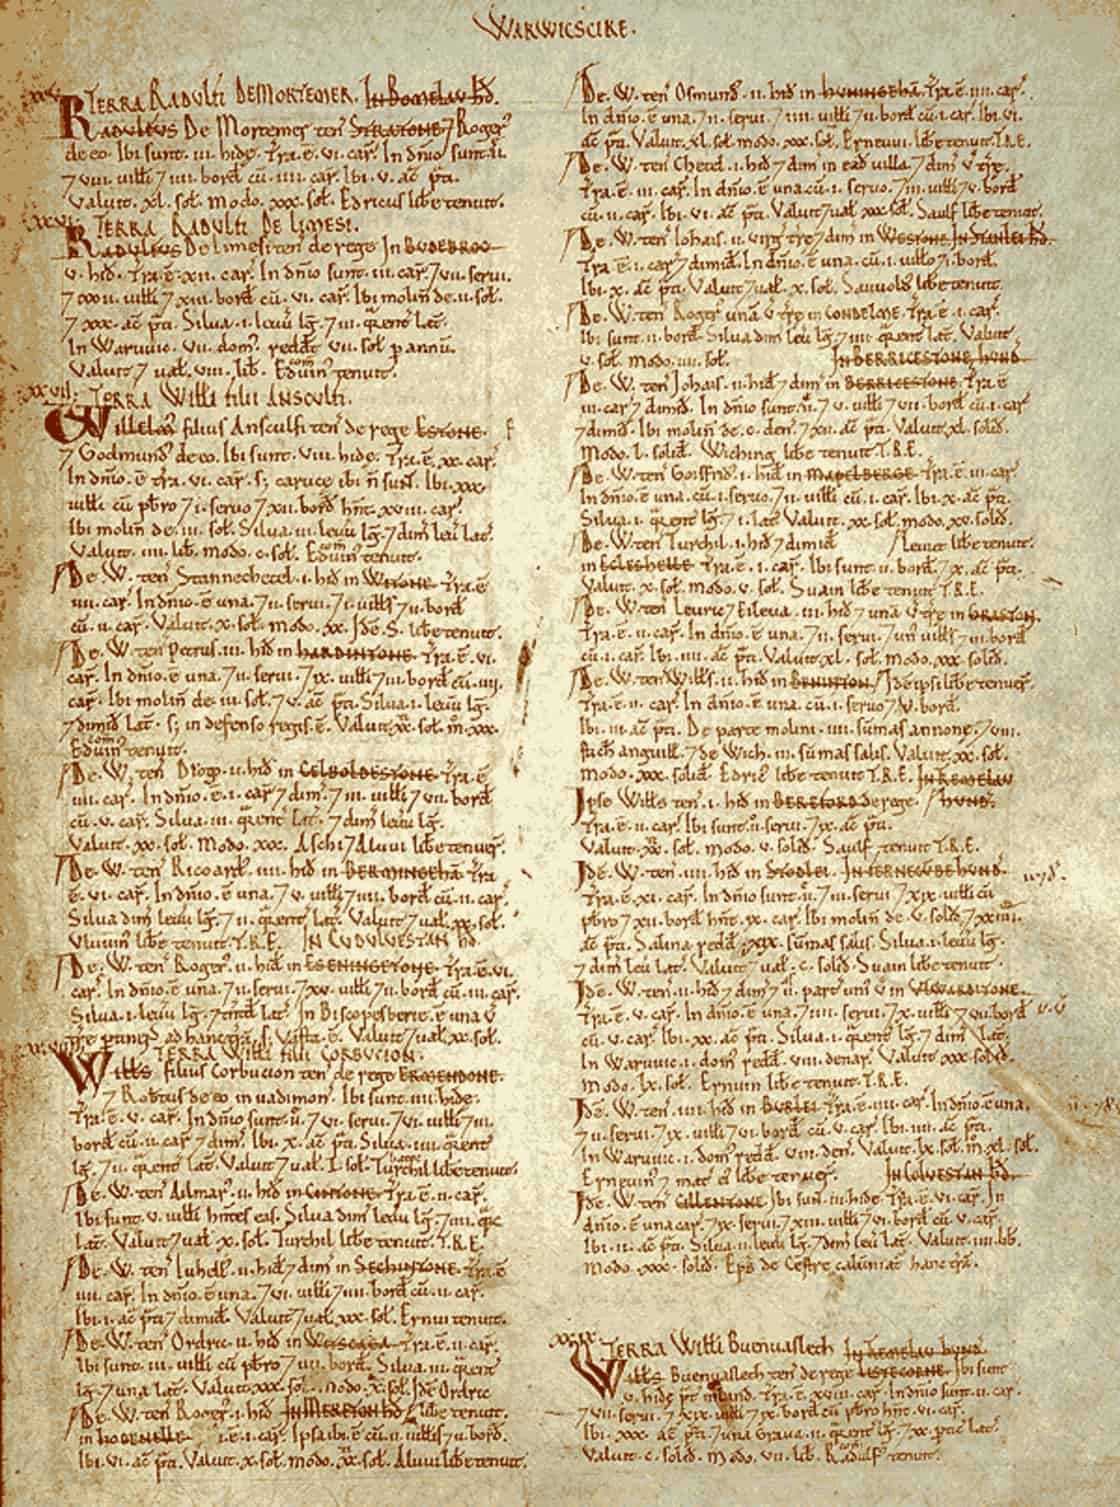 WARWICSCIRE.
XXV. TERRA RADULFI DE MORTEMER. In Bomelau hđ.
Radulfus De Mortemer teñ STRATONE 7 Roger᷒
de eo. Ibi sunt .iii. hidę. Tra.ē.vi. car̃. In dñio sunt.ii.
7 viii. uilłi 7 iiii. borđ cū .iiii. car̃. Ibi .v. ac̃ p̃ti.
Valuit .xl. soł. Modo .xxx. soł. Edricus libe tenuit.
XXVI. TERRA RADULFI DE LIMESI.
Radulfus De limesi teñ de rege In BUDEBROC
v. hiđ. Tra.ē.xii. car̃. In dñio sunt .iii. car̃. 7 vii. serui.
7 xxxii. uilłi 7 xiii. borđ cū .vi. car̃. Ibi moliñ de .ii. soł.
7 xxx. ac̃ p̃ti. Silua .i. leuu lg̃. 7 iii. q̃rent lat̃.
In Waruuic. vii. dom᷒. reddt̃ vii. soł p annū.
Valuit 7 uał. viii. lib̃. Eduin᷒ com̃ tenuit.
XXVII. TERRA WILLI FILII ANSCULFI.
Willelm᷒ filius Ansculfi teñ de rege ESTONE.
7 Godmund᷒ de eo. Ibi sunt .viii. hidę. Tra.ē.xx. car̃.
In dñio.ē tra.vi. car̃. s; carucę ibi ñ sunt. Ibi .xxx.
uilłi cū pbr̃o 7 i. seruo 7 xii. borđ hñt .xviii. car̃.
Ibi moliñ de.iii. soł. Silua .iii. leuu lg̃. 7 dim̃ leu lat̃.
Valuit .iiii. lib̃. modo .c. soł. Eduin᷒ com̃ tenuit.
De.W. teñ Stannechetel .i. hiđ in WITONE. Tra.ē
iiii. car̃. In dñio.ē una. 7 ii. serui. 7 i. uilłs 7 ii. borđ
cū .ii. car̃. Valuit .x. soł. modo .xx. Idē.S. libe tenuit.
De.W. teñ Petrus .iii. hiđ in HARDINTONE. Tra.ē.vi.
car̃. In dñio.ē una. 7 ii. serui. 7 ix. uilłi 7 iii. borđ cū .iii.
car̃. Ibi moliñ de .iii. soł. 7 v. ac̃ p̃ti. Silua .i. leuu lg̃.
7 dimiđ lat̃. s; in defenso regis.ē. Valuit .xx. soł. m̃ .xxx.
Eduin᷒ com̃ tenuit.
De.W. teñ Drogo .ii. hiđ in CELBOLDESTONE. Tra.ē
iiii. car̃. In dñio.ē.i. car̃ 7 dim̃. 7 iii. uilłi 7 vii. borđ
cū .v. car̃. Silua .iii. q̃rent lat̃. 7 dim̃ leuu lg̃.
Valuit .xx. soł. Modo .xxx. Aschi 7 Aluui libe tenuer̃.
De.W. teñ Ricoard᷒ .iiii. hiđ in BERMINGEHĀ. Tra
ē.vi. car̃. In dñio.ē una. 7 v. uilłi 7 iiii. borđ cū.ii. car̃.
Silua dim̃ leuu lg̃. 7 ii. q̃rent lat̃. Valuit 7 uał .xx. soł.
Vluuin᷒ libe tenuit.T.R.E. IN CUDULVESTAN hđ
De.W. teñ Roger᷒ .ii. hiđ in ESENINGETONE. Tra.ē.vi.
car̃. In dñio.ē una. 7 ii. serui. 7 xv. uilłi 7 ii. borđ cū .iii. car̃.
Silua .i. leuu lg̃. 7 tñtđ lat̃. In Biscopesberie.ē una v̄
træ ptiñ ad hanc trā. s; Vasta.ē. Valuit 7 uał .xx. soł.
XXVIII. TERRA WILLI FILII CORBUCION.
Wills filius Corbucion teñ de rege ERMENDONE.
7 Robtus de eo in uadimoñ. Ibi sunt .iiii. hidę.
Tra.ē.v. car̃. In dñio sunt .ii. 7 vi. serui. 7 vi. uilłi 7 iii.
borđ cū .ii. car̃ 7 dim̃. Ibi .x. ac̃ p̃ti. Silua .iiii. q̃rent
lg̃. 7 ii. q̃rent lat̃. Valuit 7 uał .l. soł. Turchil libe tenuit.
De.W. teñ Ailmar᷒ .ii. hiđ in CINTONE. Tra.ē.ii. car̃.
Ibi sunt .v. uilłi hñtes eas. Silua dim̃ leuu lg̃. 7 iiii. q̃rẽ
lat̃. Valuit 7 uał .x. soł. Turchil libe tenuit.T.R.E.
De.W. teñ Iuhell᷒ .ii. hiđ 7 dim̃ in SECHINTONE. Tra.ē
iiii. car̃. In dñio.ē una. 7 vi. uilłi 7 iiii. borđ cū .ii. car̃.
Ibi .i. ac̃ p̃ti 7 dimiđ. Valuit 7 uał .xxx. soł. Ernui tenuit.
De.W. teñ Ordric .ii. hiđ in Tra.ē.ii. car̃.
Ibi sunt .iii. uilłi cū pbr̃o 7 vii. borđ. Silua .iii. q̃rent
lg̃. 7 una lat̃. Valuit .xxx. soł. modo .x. soł. Idē Ordric
De.W. teñ Roger᷒ .i. hiđ IN MERETON hđ libe tenuit.
in .ē.i. car̃. Ipsa ibi.ē cū .ii. uilłis 7 ii. borđ.
Ibi .vi. ac̃ p̃ti. Valuit .x. soł. modo .xx. soł. Aluui libe tenuit.
De.W. teñ Osmund᷒ .ii. hiđ in HUNINGEHĀ. Tra.ē.iiii. car̃.
In dñio.ē una. 7 ii. serui. 7 iiii. uilłi 7 ii. borđ cū .i. car̃. Ibi .vi.
ac̃ p̃ti. Valuit .xl. soł. modo .xxx. soł. Ernuui libe tenuit.T.R.E.
De.W. teñ Chetel .i. hiđ 7 dim̃ in eađ uilla 7 dim̃ v̄ træ.
Tra.ē.iii. car̃. In dñio.ē una cū .i. seruo. 7 iii. uilłi 7 v. borđ
cū .ii. car̃. Ibi .vi. ac̃ p̃ti. Valuit 7 uał .xxx. soł. Saulf libe tenuit.
De.W. teñ Iohais .ii. uirg̃ træ 7 dim̃ in WESTONE. In Stanlei hđ.
Tra.ē.i. car̃ 7 dimiđ. In dñio.ē una.cū .i. uillo 7 i. borđ.
Ibi .x. ac̃ p̃ti. Valuit 7 uał .x. soł. Sauuold᷒ libe tenuit.
De.W. teñ Roger᷒ unā v̄ træ in CONDELME. Tra.ē.i. car̃.
Ibi sunt .ii. borđ. Silua dim̃ leu lg̃ 7 iiii. q̃rent lat̃. Valuit
v. soł. modo .iii. soł. IN BERRICESTONE HUND.
De.W. teñ Iohais .ii. hiđ 7 dim̃ in BERRICESTONE. Tra.ē
iii. car̃ 7 dimiđ. In dñio sunt.ii. 7 v. uilłi 7 vii. borđ cū .i. car̃
7 dimiđ. Ibi moliñ de .c. deñ. 7 xii. ac̃ p̃ti. Valuit .xl. soliđ.
Modo .l. soliđ. Wiching libe tenuit.T.R.E.
De.W. teñ Goisfrid᷒ .i. hiđ in MAPELBERGE. Tra.ē.iii. car̃.
In dñio.ē una.cū .i. seruo. 7 ii. uilłi cū .i. car̃. Ibi .x. ac̃ p̃ti.
Silua .i. q̃rent lg̃. 7 i. lat̃. Valuit .xx. soł. modo .xv. soliđ.
De.W. teñ Turchil .i. hiđ 7 dimiđ Leuiet libe tenuit.
in ECLESHELLE. Tra.ē.i. car̃. Ibi sunt .ii. borđ. 7 x. ac̃ p̃ti.
Valuit .x. soł. modo .v. soł. Suain libe tenuit T.R.E.
De.W. teñ Leuric᷒ 7 Eileua .iii. hiđ 7 una v̄ træ in GRASTON.
Tra.ē.ii. car̃. In dñio.ē una. 7 ii. serui 7 un᷒ uilłs 7 iii. borđ
cū .i. car̃. Ibi .iiii. ac̃ p̃ti. Valuit .xl. soł. modo .xxx. soliđ.
De.W. teñ Wills .ii. hiđ in BENINTON. Idē ipsi libe tenuer̃.
Tra.ē.ii. car̃. In dñio.ē una. cū .i. seruo 7 v. borđ.
Ibi .iii. ac̃ p̃ti. De parte molini .iiii. sūmas annonę. 7 viii.
stich̃ anguilł. 7 de Wich .iii. sūmas salis. Valuit .xx. soł.
modo .xxx. soliđ. Edric᷒ libe tenuit T.R.E. IN REMELAU
Ipse Wills teñ .i. hiđ in BEREFORD de rege. HUND.
Tra.ē.ii. car̃. Ibi sunt .ii. serui. 7 ix. ac̃ p̃ti.
Valuit .xx. soł. modo .v. soliđ. Saulf᷒ tenuit T.R.E.
Idē.W. teñ .iiii. hiđ in STODLEI. IN FERNECUBE HUND.
Tra.ē.xi. car̃. In dñio sunt .ii. 7 iii. serui 7 xix. uilłi cū
pbr̃o 7 xii. borđ hñt .ix. car̃. Ibi moliñ de .v. soliđ. 7 xxiiii.
ac̃ p̃ti. Salina redđ .xix. sūmas salis. Silua .i. leuu lg̃.
7 dim̃ leu lat̃. Valuit 7 uał .c. soliđ. Suain libe tenuit.
Idē.W. teñ .ii. hiđ 7 dim̃ 7 .ii. part uni᷒ v̄ in VLWARDITONE.
Tra.ē.v. car̃. In dñio.ē una. 7 iiii. serui. 7 x. uilłi 7 vii. borđ
cū .i. car̃. Ibi .xx. ac̃ p̃ti. Silua .i. q̃rent lg̃. 7 dim̃ lat̃.
In Waruuic .i. dom᷒ redđ .viii. denar̃. Valuit .xxx. soliđ.
Modo .lx. soł. Ernuin libe tenuit.T.R.E.
Idē.W. teñ .iii. hiđ in BURLEI. Tra.ē.iiii. car̃. In dñio.ē una.
7 ii. serui. 7 ix. uilłi 7 vi. borđ cū .v. car̃. Ibi .iiii. ac̃ p̃ti.
In Waruuic .i. dom᷒ redđ .viii. deñ. Valuit .lx. soł. m̃ .xl. soł.
Ernuin᷒ 7 mat̃ ei᷒ libe tenuer̃. IN COLVESTAN hđ.
Idē.W. teñ CILLENTONE. Ibi suñt .iii. hidę. Tra.ē.vi. car̃. In
dñio.ē una car̃. 7 ix. serui. 7 xiii. uilłi 7 vi. borđ cū .v. car̃.
Ibi .ii. ac̃ p̃ti. Silua .ii. leuu lg̃. 7 dim̃ leu lat̃. Valuit .iiii. lib̃.
Modo .xxx. soliđ. Ep̃s de Cestre calūniat̃ hanc trā.
XXIX. TERRA WILLI BUENVASLECH IN REMELAU HUND.
Wills Buenuaslech teñ de rege LISTECORNE. Ibi sunt
v. hidę p̃t inland. Tra.ē.xviii. car̃. In dñio sunt .ii. car̃.
7 vii. serui. 7 xix. uilłi 7 ix. borđ cū pbr̃o hñt .vi. car̃.
Ibi .xxx. ac̃ p̃ti. 7 una Graua .ii. q̃rent lg̃. 7 xx. ptic̃ lat̃.
Valuit .c. soliđ. Modo .vii. lib̃. Radulf᷒ com̃ tenuit.